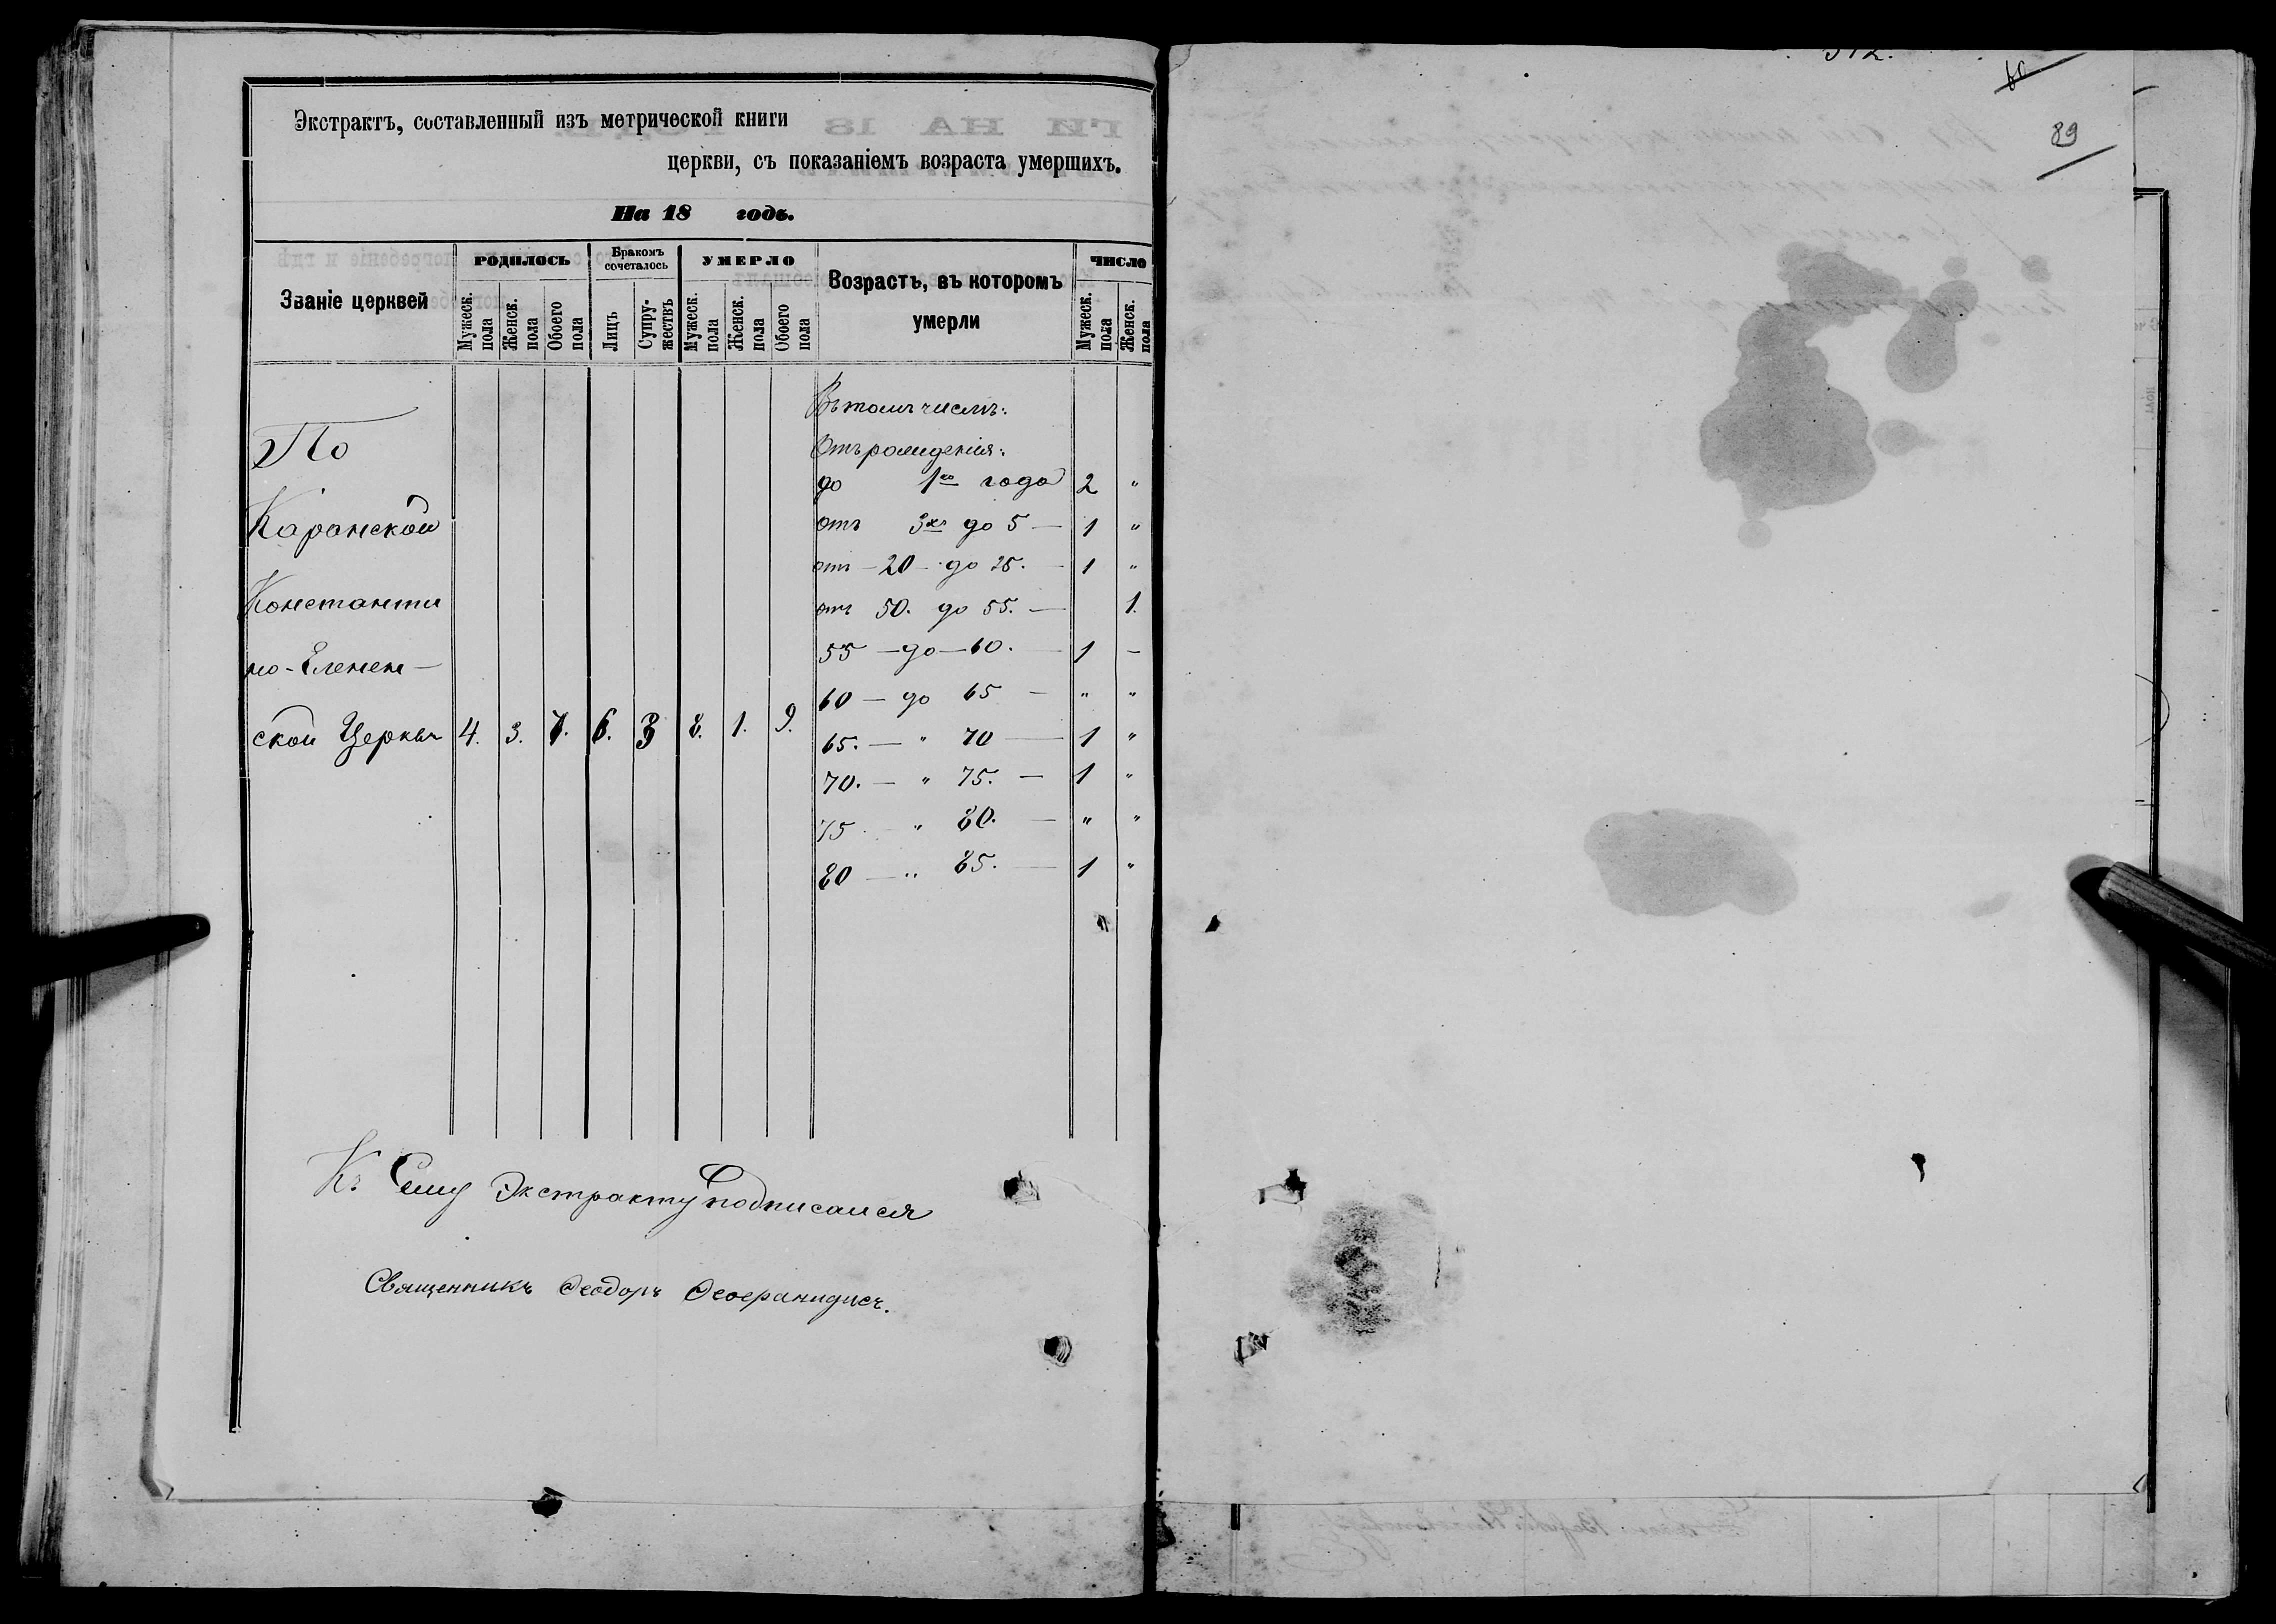 Экстрактъ, составленный изъ метрической книги
церкви, съ показаніемъ возраста умершихъ.
На 18 годъ.
Званіе церквей
РОДИЛОСЬ
Бракомъ сочеталось
УМЕРЛО
Возрастъ, въ которомъ
умерли
ЧИСЛО
Мужеск. пола
Женск. пола
Обоего пола
Лицъ
Супружествъ
Мужеск. пола
Женск. пола
Обоего пола
Мужеск. пола
Женск. пола
Въ томъ числѣ:
По
Отъ рожденія:
до 1го года 2 "
Каранской
отъ 3хъ до 5 — 1 "
отъ — 20 — до 25. — 1 "
Константи
отъ 50. до 55. — 1.
но-Еленен—
55 — до — 60. — 1 —
60 — до 65 — " "
ской Церкви 4. 3. 7. 6. 3 8. 1. 9.
65. — " 70 — 1 "
70. — " 75. — 1 "
75 — " 80. — " "
80 — " 85. — 1 "
Къ Сему Экстракту подписался
Священникъ Ѳеодоръ
89